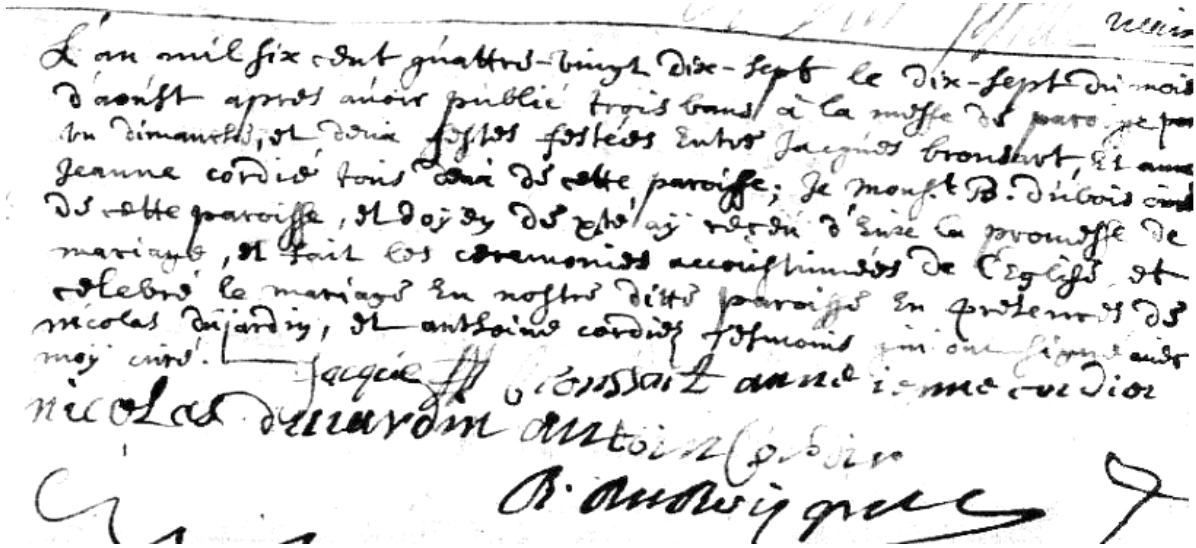 L'an mil six cent quattre-vingt dix-sept le dix-sept du mois
d'aoust apres avoir publié trois bans à la messe de par
un dimanche, et deux festes festées Entre Jacques broussart, Et anne
Jeanne cordié tous deux de cette paroisse; Je B. dubois curé
de cette paroisse, et doyen de xté ay reçeu d'Eux la promesse de
mariage, et fait les ceremonies accoustumées de l'Eglise et
celebré le mariage En nostre ditte paroisse En presences de
nicolas dujardin, et anthoine cordiez tesmoins qui ont signé avec
moy curé.
Jacque broussart anne ienne cordier
nicolas duiardin antoin
B. du